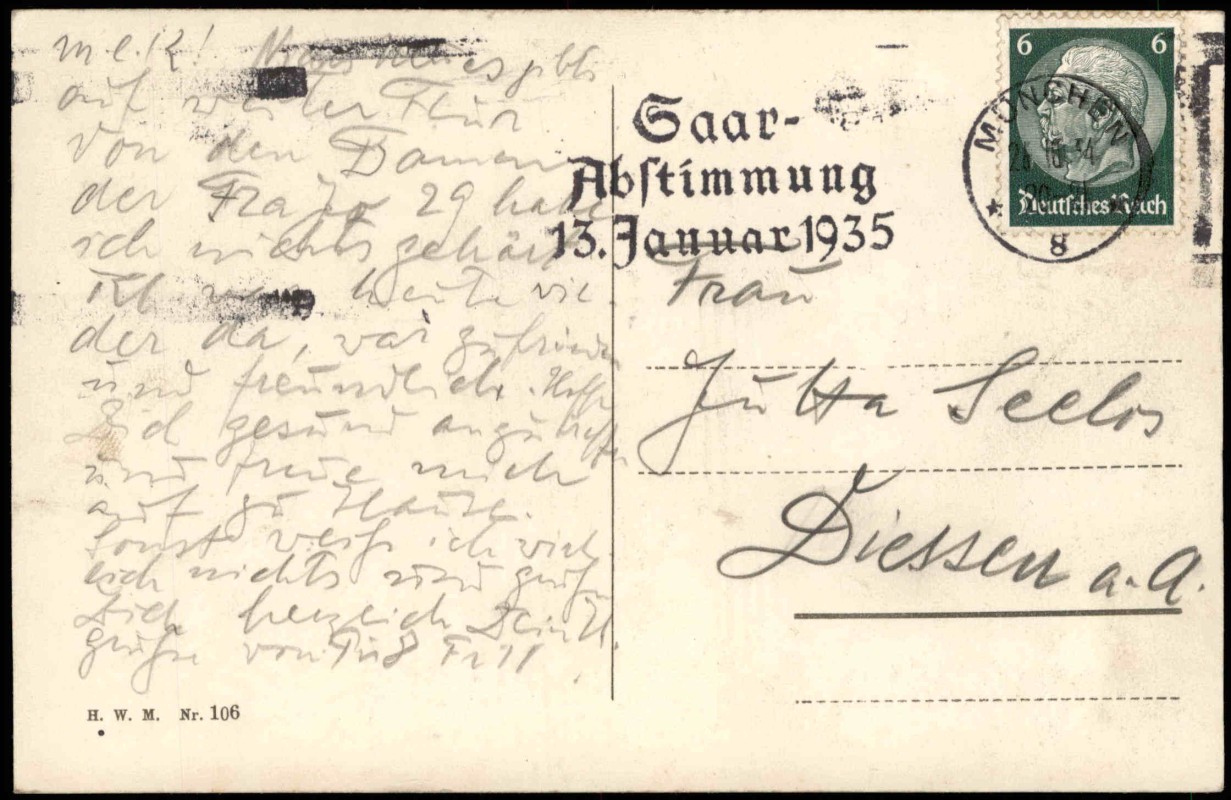 m. l. K! Neues gibts
auf weiter Flur
von den Damen
der Frajo 29 habe
ich nichts gehört
war heute wie
der da, war zufrieden
und freundlich. Hoffe
Dich gesund anzutreffen
und freue mich
auf zu Hause.
Sonst weiß ich wirk
lich nichts und grüße
Dich herzlich Dein
Grüße von
H. W. M. Nr. 106
Saar-
Abstimmung
13. Januar 1935
MÜNCHEN
8
6 6
Deutsches Reich
Frau
Jutta Seelos
Diessen a. A.